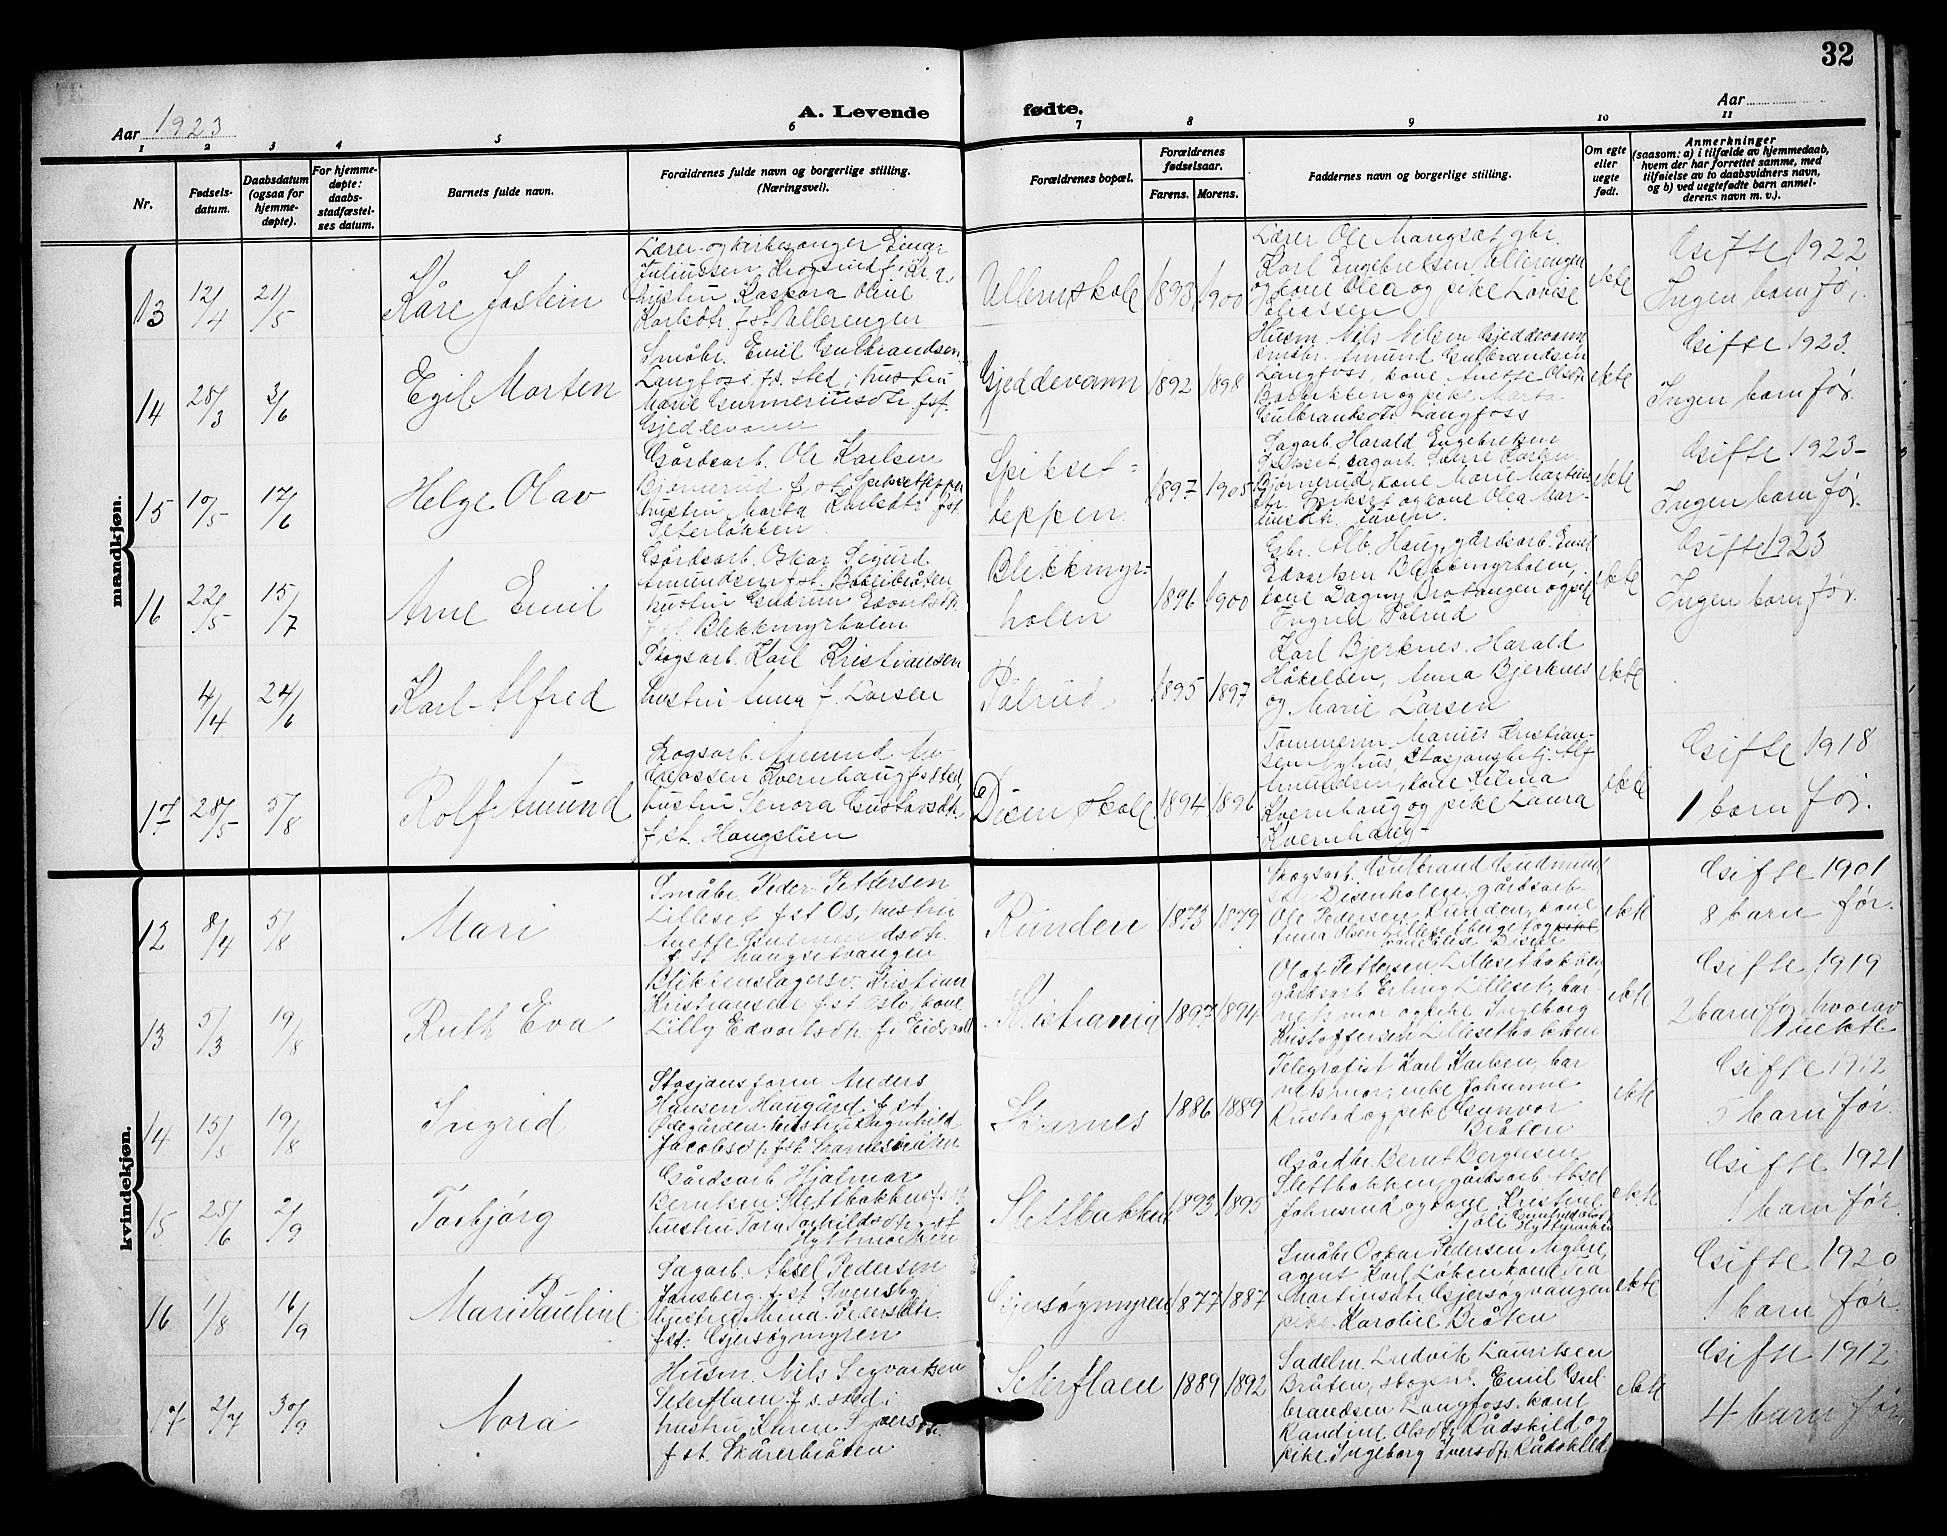 32
A. Levende fødte.
Aar 1923
Aar
1 2 3 4 5 6 7 8 9 10 11
Nr.
Fødsels-
datum.
Daabsdatum
(ogsaa for
hjemme-
døpte).
For hjemme-
døpte:
daabs-
stadfæstel-
ses datum.
Barnets fulde navn.
Forældrenes fulde navn og borgerlige stilling.
(Næringsvei).
Forældrenes bopæl.
Forældrenes
fødselsaar.
Farens. Morens.
Faddernes navn og borgerlige stilling.
Om egte
eller
uegte
født.
Anmerkninger
(saasom: a) i tilfælde av hjemmedaab,
hvem der har forrettet samme, med
tilføielse av to daabsvidners navn,
og b) ved uegtefødte barn anmel-
derens navn m. v.).
mandkjøn.
13
12/4
21/5
Kåre Jostein
Lærer og kirkesanger Einar
Juliussen Krogsrud f. i Kr.a,
hustru Kaspara Oline
Karlsdtr. f. st. Vallerengen
Ullern skole
1893
1900
Lærer Ole Mangset, gbr.
Karl Engebretsen Vallerengen
og kone Olea og pike Lovise
ekte
Gifte 1922
Ingen barn før.
14
28/3
3/6
Egil Morten
Småbr. Emil Gulbrandsen
Langfoss f. s. sted, hustru
Marie Gunneriusdtr. f. st.
Gjeddevann
Gjeddevann
1892
1898
Husm. Nils Nilsen Gjeddevann
småbr. Amund Gulbrandsen
Langfoss, kone Anette Olsdtr.
og pike Marta
Gulbrandsdtr. Langfoss
ekte
Gifte 1923.
Ingen barn før.
15
10/5
17/6
Helge Olav
Gårdsarb. Ole Karlsen
Bjørnerud f. st.
hustru Marta Karlsdtr. f. st.
Peterløkken
Spikset=
teppen
1897
1905
Sagarb. Harald Engebretsen
Spikset, sagarb. Karlsen
Bjørnerud, kone Marie Martins-
dtr. Spikset og kone Olea Mar-
tinsdtr.
ekte
Gifte 1923-
Ingen barn før.
16
22/5
15/7
Arne Emil
Gårdsarb. Oskar Sigurd
Amundsen f. st.
hustru Gudrun Edvartsdtr.
f. st. Blekkmyrholen
Blekkmyr-
holen
1896
1900
Gbr. Alb. Haug, gårdsarb. Emil
Edvartsen Blekkmyrholen,
kone Dagny Brotangen og pike
Ingrid Pålrud
ekte
Gifte 1923
Ingen barn før.
4/14
24/6
Karl-Alfred
Skogsarb. Karl Kristiansen
hustru Anna f. Larsen
Pålrud
1895
1897
Karl Bjerknes. Harald
Håkelsen, Anna Bjerknes
og Marie Larsen
ekte
17
28/5
5/8
Rolf Amund
Skogsarb. Amund An-
dreassen Kvernhaug f. s. sted,
hustru Senora Gustavsdtr.
f. st. Haugstien
Disen skole
1894
1896
Tømmerm. Marius Kristian-
sen Nyhus, Stasjonsbetj. Alf
Amundsen, kone
Kvernhaug og pike Laura
Kvernhaug-
ekte
Gifte 1918
1 barn før.
kvindekjøn.
12
8/4
5/8
Mari
Småbr. Peder Pettersen
Lilleset f. st. Os, hustru
Anette Gudmundsdtr.
f. st. Haugsetvangen
Runden
1873
1879
Skogsarb. Gulbrand Gudmund-
sen Disenholen, gårdsarb.
Ole Pedersen Runden, kone
Anna Olsen Lillesetberget og pike
kone Elise Disen
ekte
Gifte 1901
8 barn før.
13
5/3
19/8
Ruth Eva
Blikkenslagersv. Kristian
Kristiansen f. st. Oslo, kone
Lilly Edvartsdtr. f. i Eidsvoll
Kristiania
1897
1894
Olaf Pettersen Lillesetbakken,
gårdsarb. Erling Lilleset, bar-
nets mor og pike Ingeborg
Kristoffersen Lillesetbakken
ekte
Gifte 1919
2 barn før, hvorav
1 uekte
14
15/5
19/8
Ingrid
Stasjonsform. Anders
Hansen Haugård f. st.
hustru Ragnhild
Jacobsdtr. f. st.
Skarnes
1886
1889
Telegrafist Karl Karlsen, bar-
nets mor, enke Johanne
Rustad og pike Gunvor
Bråten
ekte
Gifte 1912
5 barn før.
15
25/6
2/9
Torbjørg
Gårdsarb. Hjalmar
Berntsen Slettbakken f. s. st.
hustru Tora Torhildsdtr. f. st.
Hyttmoen
Slettbakken
1893
1895
Gårdbr. Bernt Bergersen
Slettbakken, gårdsarb. Aksel
Johnsrud og kone Kristine
ekte
Gifte 1921
1 barn før.
16
1/8
16/9
Mari Pauline
Sagarb. Aksel Pedersen
Fonsberg f. st. Svensby
hustru Mina Pedersdtr.
f. st. Gjersøgmyren
Gjersøgmyren
1877
1887
Småbr. Oskar Pedersen Nyhus,
agent Karl Løken, kone Pia
Martinsdtr. Gjersøgvangen
pike Karoline Bråten
ekte
Gifte 1920
1 barn før.
17
2/7
30/9
Nora
Husm. Nils Sigvartsen
Seterflaen f. s. sted,
hustru Karen Syversdtr.
f. st. Skårerbråten
Seterflaen
1889
1892
Sadelm. Ludvik Lauritsen
Bråten, skogsarb. Emil Gul-
brandsen Langfoss, kone
Randine Olsdtr. Rådskild og
pike Ingeborg Iversdtr. Rådskild
ekte
Gifte 1912
4 barn før.